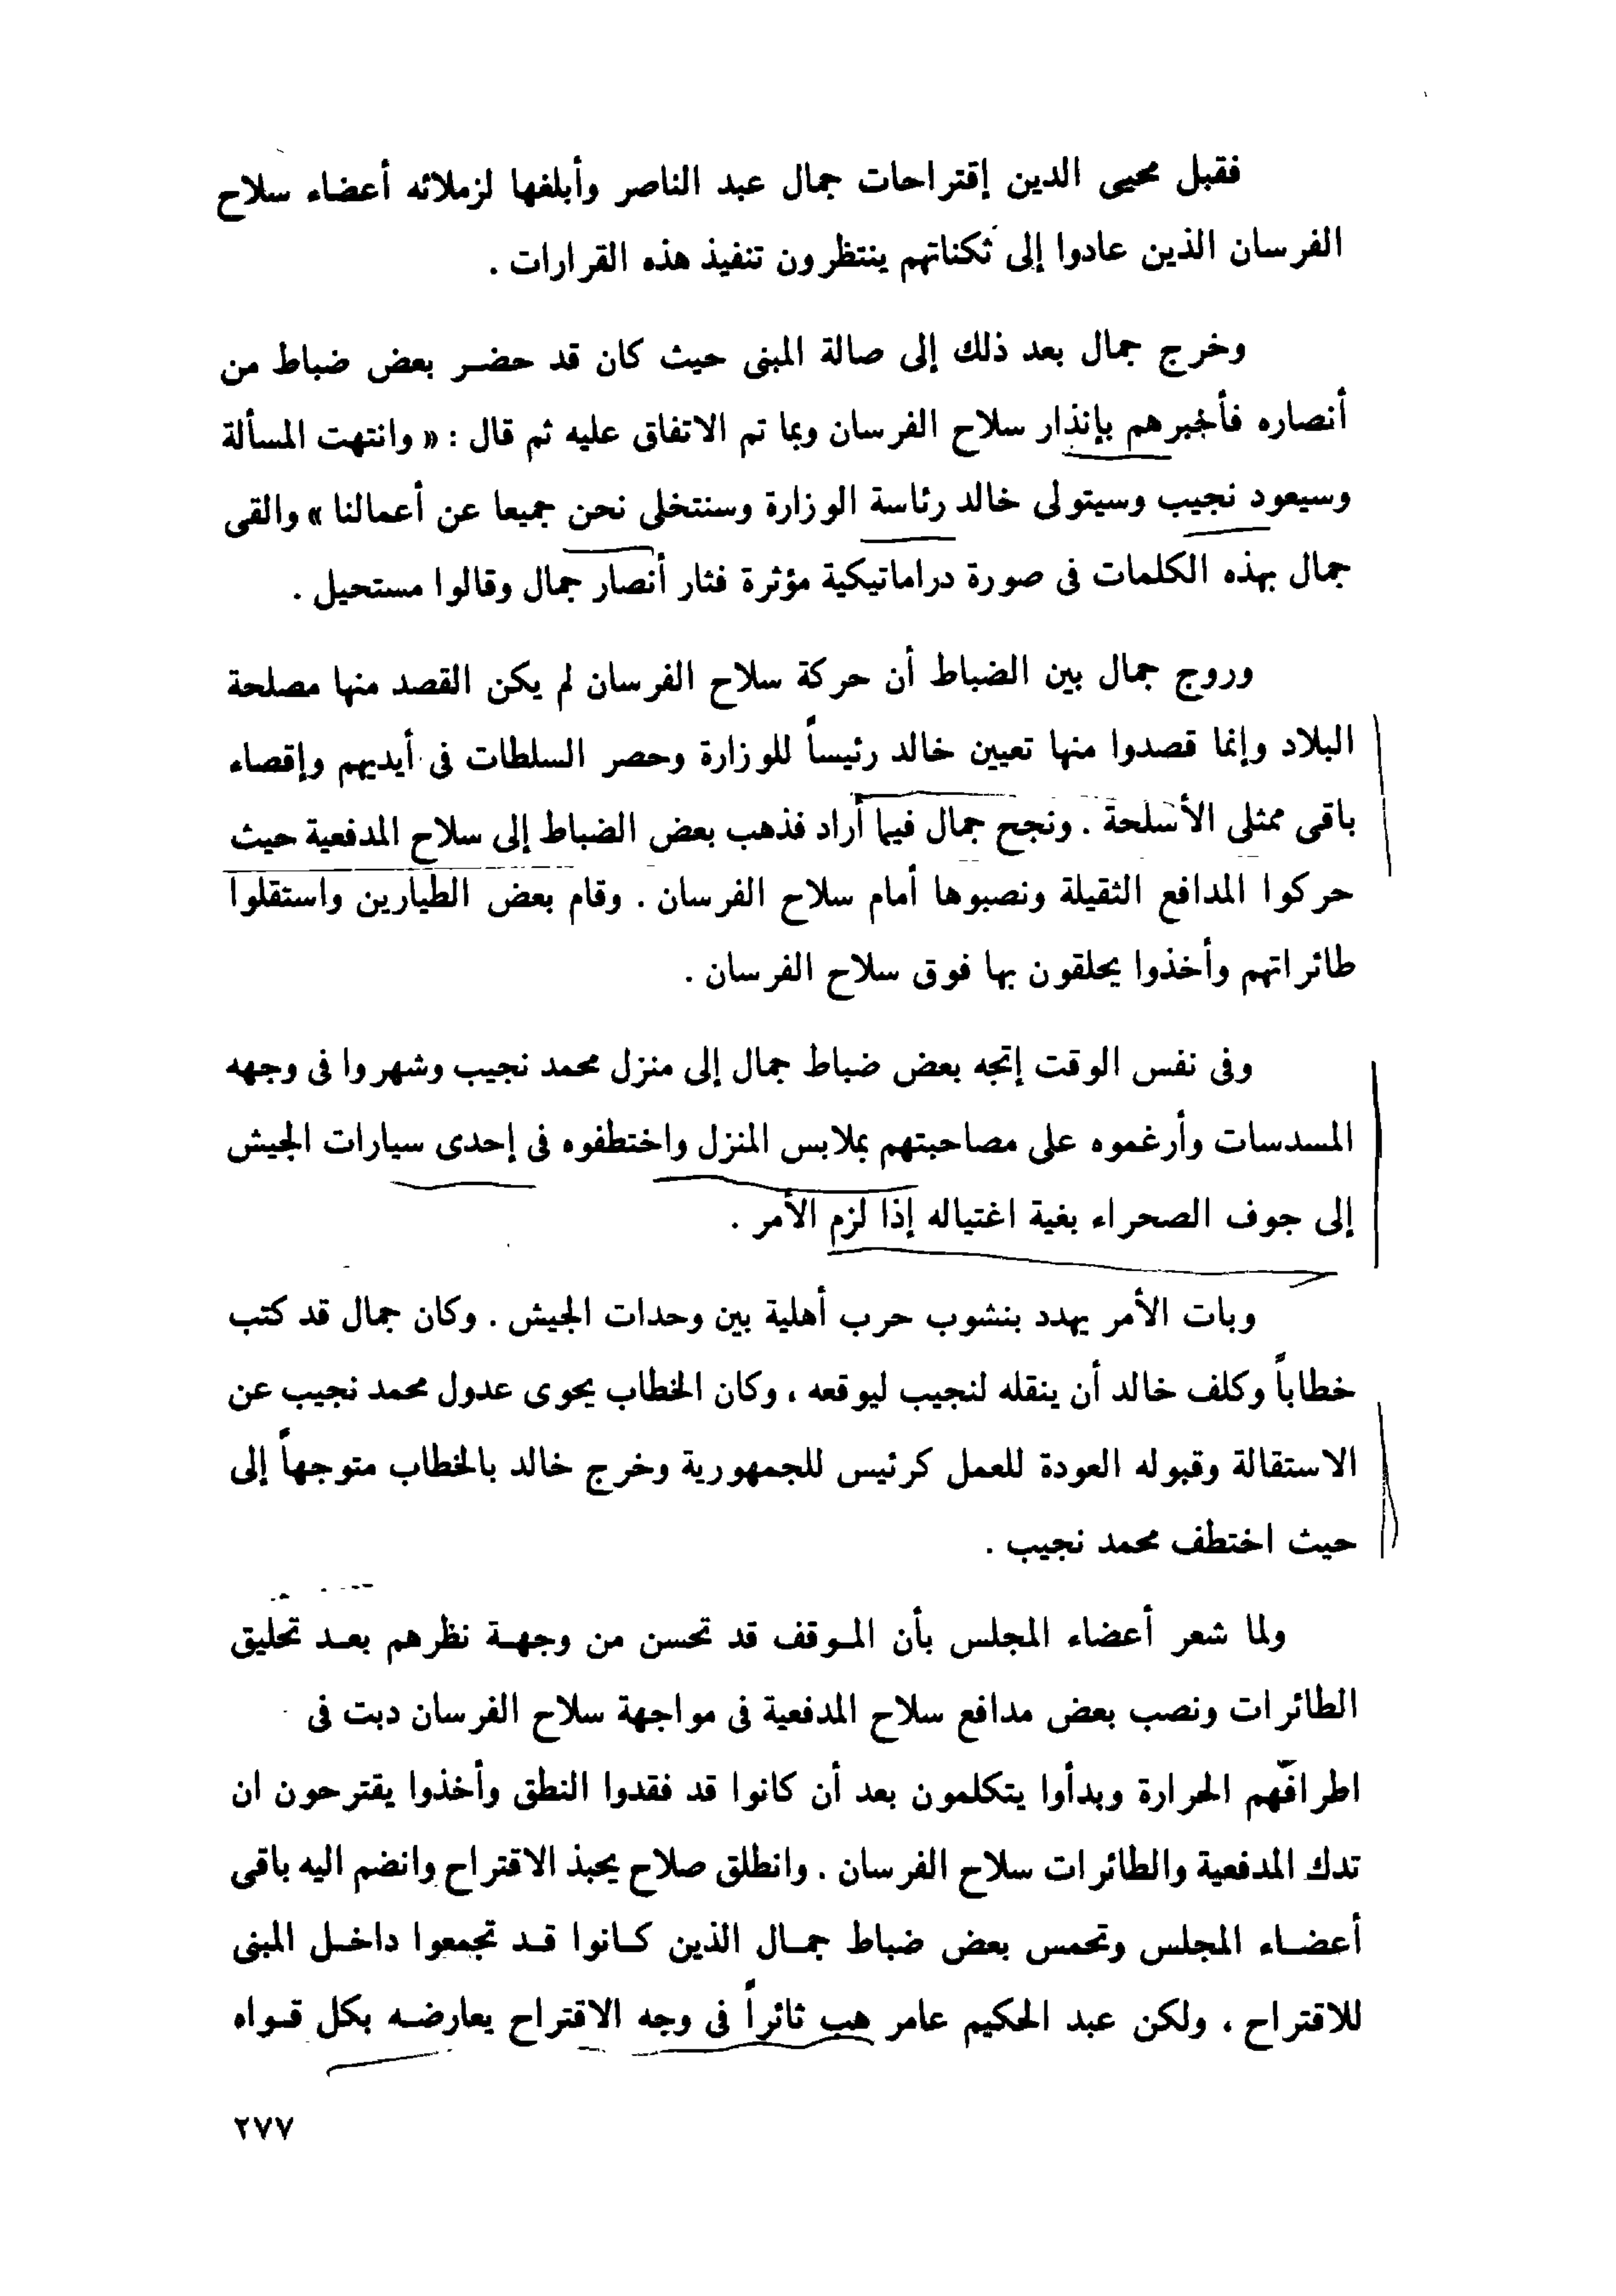 فقبل محيى الدين إقتراحات جمال عبد الناصر وأبلغها لزملائه أعضاء سلاح
الفرسان الذين عادوا إلى ثكناتهم ينتظرون تنفيذ هذه القرارات .
وخرج جمال بعد ذلك إلى صالة المبنى حيث كان قد حضر بعض ضباط من
أنصاره فأخبرهم بإنذار سلاح الفرسان وبما تم الاتفاق عليه ثم قال : « وانتهت المسألة
وسيعود نجيب وسيتولى خالد رئاسة الوزارة وسنتخلى نحن جميعا عن أعمالنا » والقى
جمال بهذه الكلمات فى صورة دراماتيكية مؤثرة فثار أنصار جمال وقالوا مستحيل .
وروج جمال بين الضباط أن حركة سلاح الفرسان لم يكن القصد منها مصلحة
البلاد وإنما قصدوا منها تعيين خالد رئيساً للوزارة وحصر السلطات فى أيديهم وإقصاء
باقى ممثلى الأسلحة . ونجح جمال فيما أراد فذهب بعض الضباط إلى سلاح المدفعية حيث
حركوا المدافع الثقيلة ونصبوها أمام سلاح الفرسان . وقام بعض الطيارين واستقلوا
طائراتهم وأخذوا يحلقون بها فوق سلاح الفرسان .
وفى نفس الوقت إتجه بعض ضباط جمال إلى منزل محمد نجيب وشهروا فى وجهه
المسدسات وأرغموه على مصاحبتهم بملابس المنزل واختطفوه فى إحدى سيارات الجيش
إلى جوف الصحراء بغية اغتياله إذا لزم الأمر .
وبات الأمر يهدد بنشوب حرب أهلية بين وحدات الجيش . وكان جمال قد كتب
خطاباً وكلف خالد أن ينقله لنجيب ليوقعه ، وكان الخطاب يحوى عدول محمد نجيب عن
الاستقالة وقبوله العودة للعمل كرئيس للجمهورية وخرج خالد بالخطاب متوجهاً إلى
حيث اختطف محمد نجيب .
ولما شعر أعضاء المجلس بأن الموقف قد تحسن من وجهة نظرهم بعد تحليق
الطائرات ونصب بعض مدافع سلاح المدفعية فى مواجهة سلاح الفرسان دبت فى
اطرافهم الحرارة وبدأوا يتكلمون بعد أن كانوا قد فقدوا النطق وأخذوا يقترحون ان
تدك المدفعية والطائرات سلاح الفرسان . وانطلق صلاح يحبذ الاقتراح وانضم اليه باقى
أعضاء المجلس وتحمس بعض ضباط جمال الذين كانوا قد تجمعوا داخل المبنى
للاقتراح ، ولكن عبد الحكيم عامر هب ثائراً فى وجه الاقتراح يعارضه بكل قواه
٢٧٧